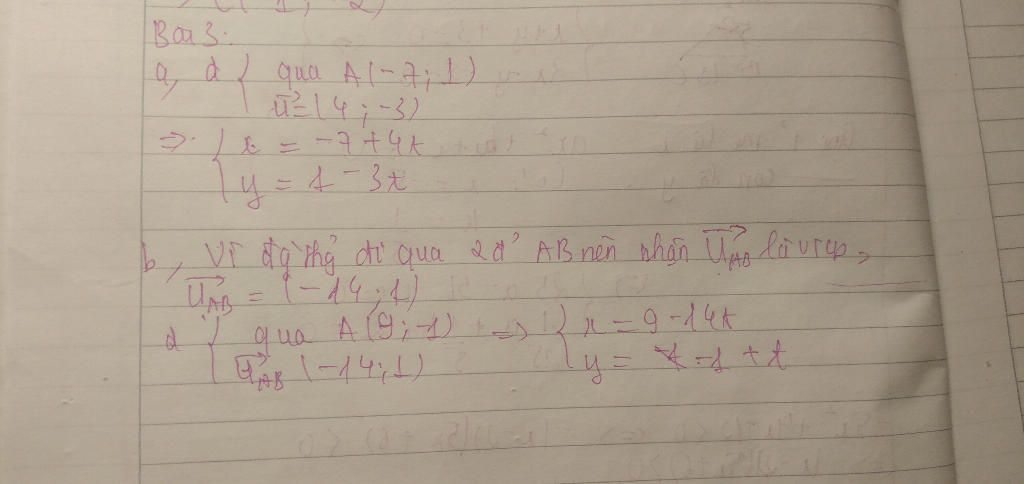 Bài 3:
a, d { qua A(-7; 1)
u⃗ = (4; -3)
=> { x = -7 + 4t
y = 1 - 3t
b, Vì đg thg đi qua 2 đ' AB nên nhận U⃗AB là vtcp,
U⃗AB = (-14; 1)
d { qua A(9; -1) => { x = 9 - 14t
U⃗AB (-14; 1) y = -1 + t